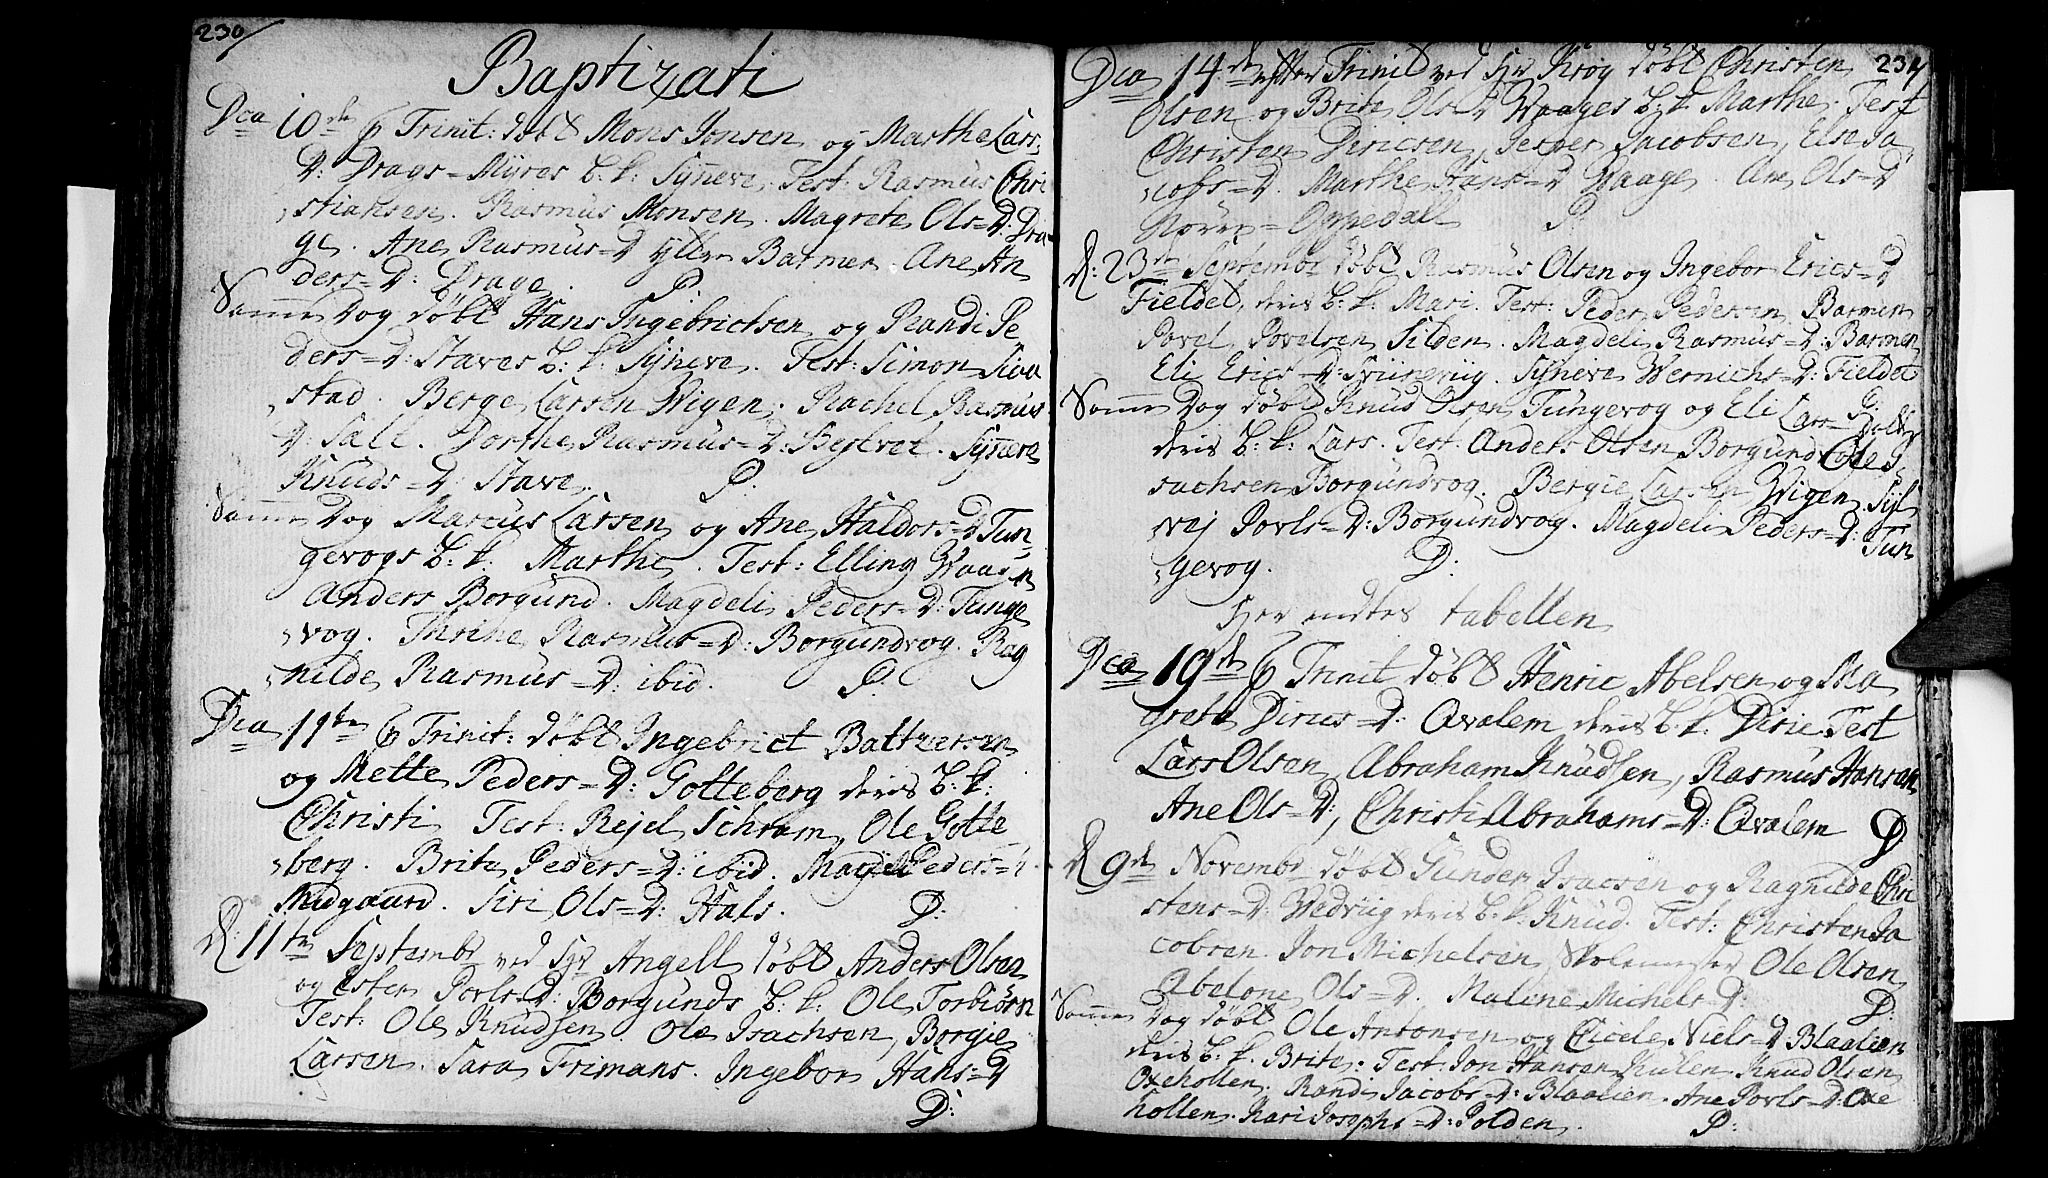 230
Baptizati
Dca 10de p Trinit: døbt Mons Jonsen og Marthe Lars
D: Drags-Myres b: k: Synneve. Test: Rasmus Chri
stiansen. Rasmus Monsen. Magrete Ols=D: Dra
ge. Ane Rasmus=D Barmen. Ane An
ders=D: Drage. P.
Samme Dag døbt Hans Ingebrictsen og Randi Pe
ders=D: Staves b: k: Synneve. Test: Simon Siva
stad. Berge Larsen Wigen. Rachel Rasmus
D: Sall. Dorthe Rasmus=D: . Synneve
Knuds=D: Stave. P.
Samme Dag Marcus Larsen og Ane Haldors=D Tun
gevogs b: k: Marthe. Test: Elling Waagen
Anders Borgund. Magdeli Peders=D: Tunge
vog. Rasmus=D: Borgundvog. Rag
nilde Rasmus=D: ibid. P.
Dca 11te p Trinit: døbt Ingebrict Baltzersen
og Mette Peders=D: Gotteberg deris b: k:
Christi Test: Rejel Schram, Ole Gotte
berg. Brite Peders=D: ibid. Peders=D
Midgaard. Siri Ols=D: Hals. D:
d. 11te Septembr ved Hr Angell døbt Anders Olsen
og Ester Povls=D: Borgunds b: k: Ole Torbiørn
Test: Ole Knudsen. Ole Isachsen, Borgie
Larsen. Sara Frimans. Ingebor Hans=D
D:
Dca 14de efter Trinit ved Hr Krog døbt Christen 231
Olsen og Brite Ols=D Waages b: k: Marthe. Test
Christen Diricsen, Jesper Jacobsen, Else Ja
cobs=D. Marthe Hans=D Waage. Ane Ols=D
Nörre=Oppedall P.
d: 23de Septembr døbt Rasmus Olsen og Ingebor Erics=D
Fieldet, deris b: k: Mari. Test: Peder Pedersen Barmen
Povel Povelsen Silden. Magdeli Rasmus=D: Barmen
Eli Erics=D: . Synneve Wernichs=D: Fieldet
P.
Samme Dag døbt Knud Olsen Tungevog og Eli Lars=D
deris b: k: Lars. Test: Anders Olsen Borgundvog Ole I
sachsen Borgundvog. Bergie Larsen Wigen. Syl
vej Povls=D: Borgundvog. Magdeli Peders=D: Tun
gevog. D:
Her endtes tabellen
Dca 19de p Trinit døbt Henric Abelsen og Ma
grete Dirics=D: Qvalem deris b: k: Diric. Test
Lars Olsen, Abraham Knudsen, Rasmus Hansen
Ane Ols=D, Christi Abrahams=D: Qvalem D
d 9de Novembr døbt Gunder Isacsen og Ragnilde Chri
stens=D: Vedviig deris b: k: Knud. Test: Christen Ja
cobsen. Jon Michelsen, Skolemester Ole Olsen
Abelone Ols=D. Malene Michels=D. D:
Samme Dag døbt Ole Antonsen og Cicele Niels=D Blaalien
deris b: k: Brite. Test Jon Hansen Hulen. Knud Olsen
Oxehollen. Randi Jacobs=D: Blaalien. Ane Povls=D: Oxe
hollen. Kari Josephs=D: Polden. P: